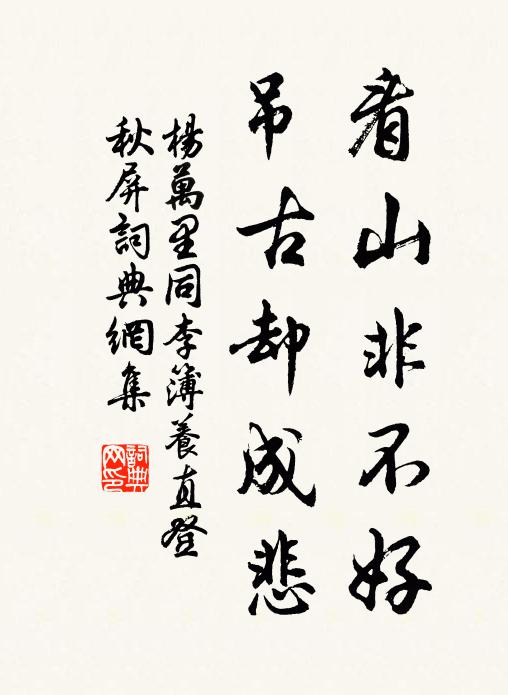 看山非不好
吊古却成悲
楊萬里同李簿養直登
秋屏詞典網集
詞典
网印